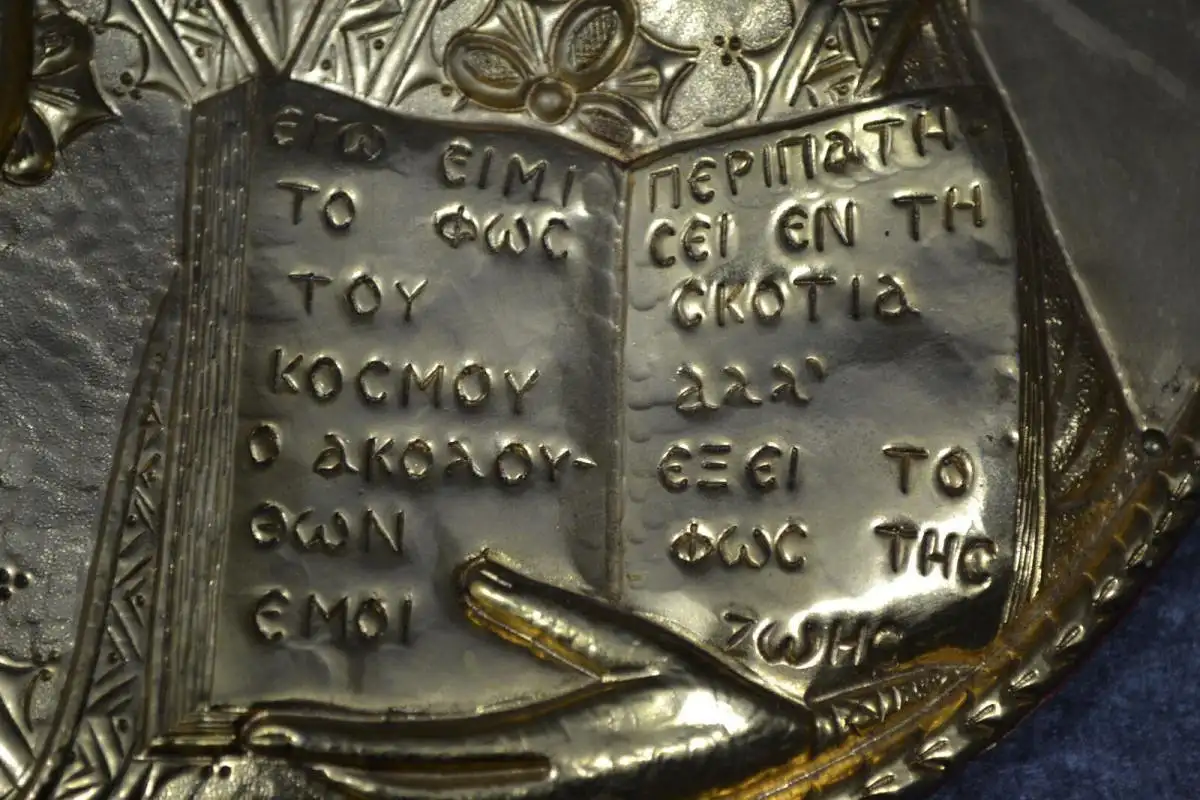 εγω ειμι
το φωc
του
κοcμου
ο ακολου-
θων
εμοι
περιπατη-
cει εν τη
cκοτια
αλλ'
εξει το
φωc τηc
ζωηc